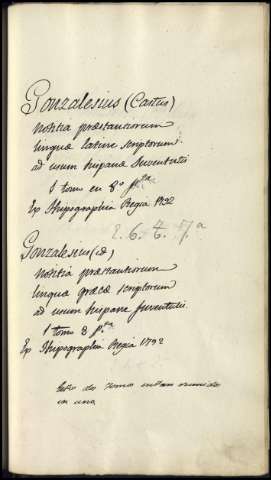 Gonzalesius (Cartus)
notitia præstantiorum
linguæ latinæ scriptorum
ad usum hispanæ Juventutis
1 tomo en 8º pta
Ex Thipographia Regia 1792
2. 6. 7.a
Gonzalesius (id)
notitia præstantiorum
linguæ græcæ scriptorum
ad usum hispanæ Juventutis
1 tomo 8 pta
Ex Thipographia Regia 1792
dos tomos
en uno